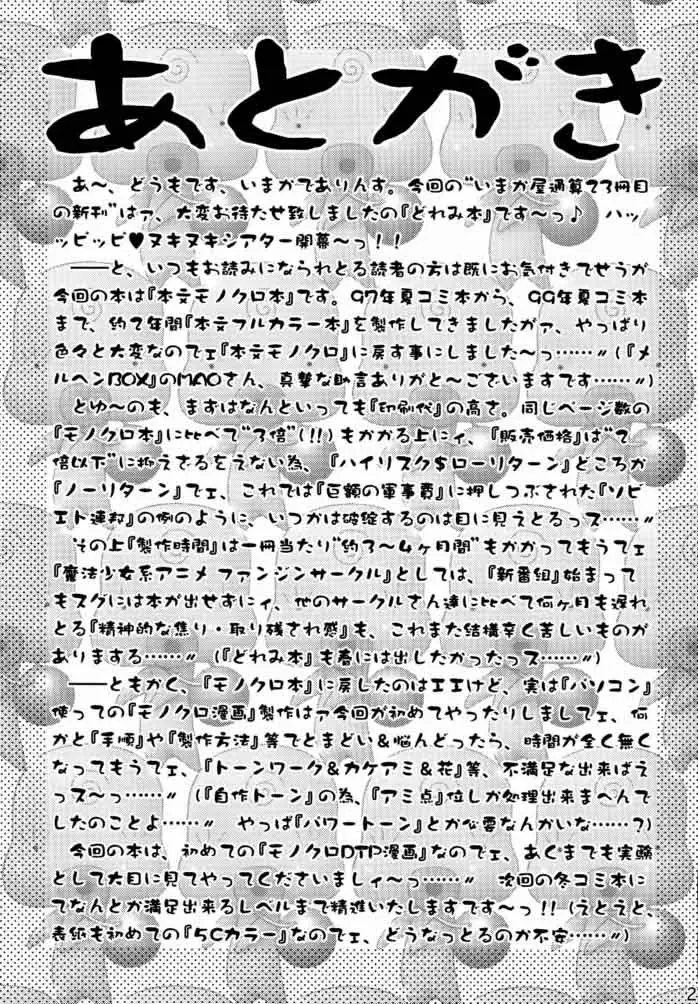 あとがき
あ～、どうもです、いまかでありんす。今回の“いまか屋通算23冊目
の新刊”はァ、大変お待たせ致しましたの『どれみ本』です～っ♪　ハッ
ッピッピ♥ヌキヌキシアター開幕～っ！！
――と、いつもお読みになられとる読者の方は既にお気付きでせうが
今回の本は『本文モノクロ本』です。97年夏コミ本から、99年夏コミ本
まで、約2年間『本文フルカラー本』を製作してきましたがァ、やっぱり
色々と大変なのでェ『本文モノクロ』に戻す事にしました～っ……〃（『メ
ルヘンBOX』のMAOさん、真摯な助言ありがと～ございますです……〃）
とゆ～のも、まずはなんといっても『印刷代』の高さ。同じページ数の
『モノクロ本』に比べて“3倍”（！！）もかかる上にィ、『販売価格』は“2
倍以下”に抑えざるをえない為、『ハイリスク$ローリターン』どころか
『ノーリターン』でェ、これでは『巨額の軍事費』に押しつぶされた『ソビ
エト連邦』の例のように、いつかは破綻するのは目に見えとるっス……〃
その上『製作時間』は一冊当たり“約3～4ヶ月間”もかかってもうてェ
『魔法少女系アニメ ファンジンサークル』としては、『新番組』始まって
もスグには本が出せずにィ、他のサークルさん達に比べて何ヶ月も遅れ
とる『精神的な焦り・取り残され感』も、これまた結構辛く苦しいものが
ありまする……〃　（『どれみ本』も春には出したかったっス……〃）
――ともかく、『モノクロ本』に戻したのはエエけど、実は『パソコン』
使っての『モノクロ漫画』製作はァ今回が初めてやったりしましてェ、何
かと『手順』や『製作方法』等でとまどい＆悩んどったら、時間が全く無く
なってもうてェ、『トーンワーク＆カケアミ＆花』等、不満足な出来ばえ
っス～っ……〃　（『自作トーン』の為、『アミ点』位しか処理出来まへんで
したのことよ……〃　やっぱ『パワートーン』とか必要なんかいな……？）
今回の本は、初めての『モノクロDTP漫画』なのでェ、あくまでも実験
として大目に見てやってくださいましィ～っ……〃　次回の冬コミ本に
てなんとか満足出来るレベルまで精進いたしますです～っ！！（えとえと、
表紙も初めての『5Cカラー』なのでェ、どうなっとるのか不安……〃）
2